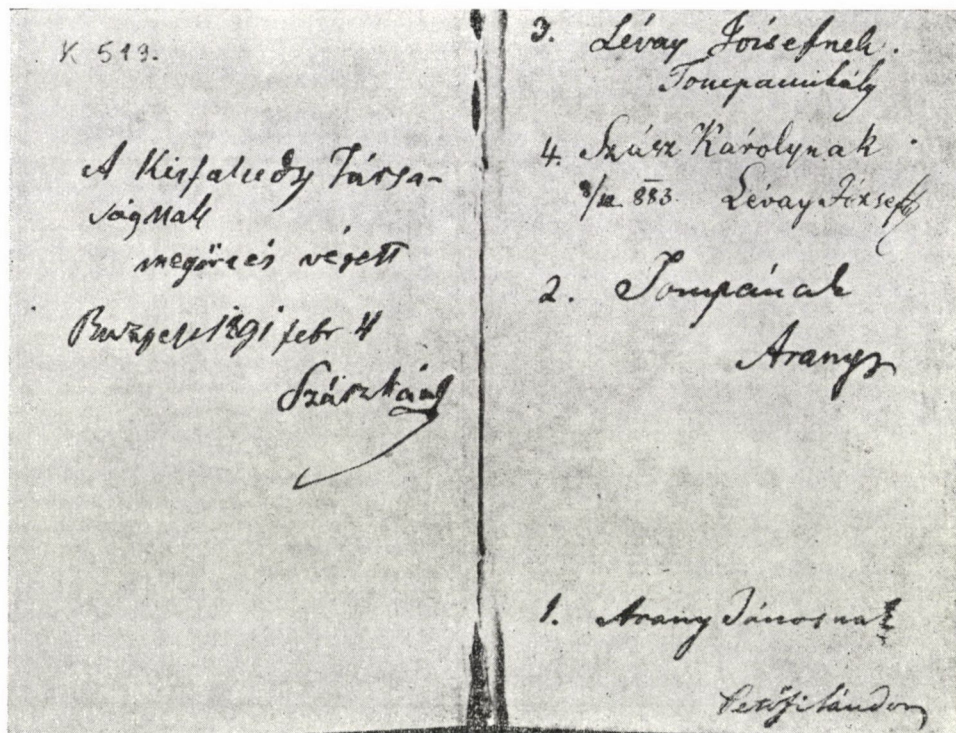 K 513.
A Kisfaludy Társa-
ságnak
megőrzés végett
Budapest 1891 febr 4
Szász Károly
3. Lévay Józsefnek.
Tompa Mihály
4. Szász Károlynak
8/12 883. Lévay József
2. Tompának
Arany
1. Arany Jánosnak
Petőfi Sándor